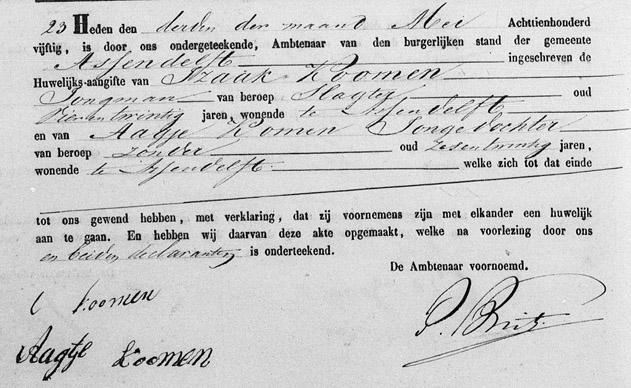 23 Heden den derden der maand Mei Achttienhonderd
vijftig, is door ons ondergeteekende, Ambtenaar van den burgerlijken stand der gemeente
Assendelft ingeschreven de
Huwelijks-aangifte van Izaak Koomen
Jongman van beroep Slagter oud
vierentwintig jaren, wonende te Assendelft
en van Aagje Komen Jonge dochter
van beroep zonder oud zesentwintig jaren,
wonende te Assendelft welke zich tot dat einde
tot ons gewend hebben, met verklaring, dat zij voornemens zijn met elkander een huwelijk
aan te gaan. En hebben wij daarvan deze akte opgemaakt, welke na voorlezing door ons
en beiden declaranten is onderteekend.
De Ambtenaar voornoemd.
koomen
Aagtje koomen